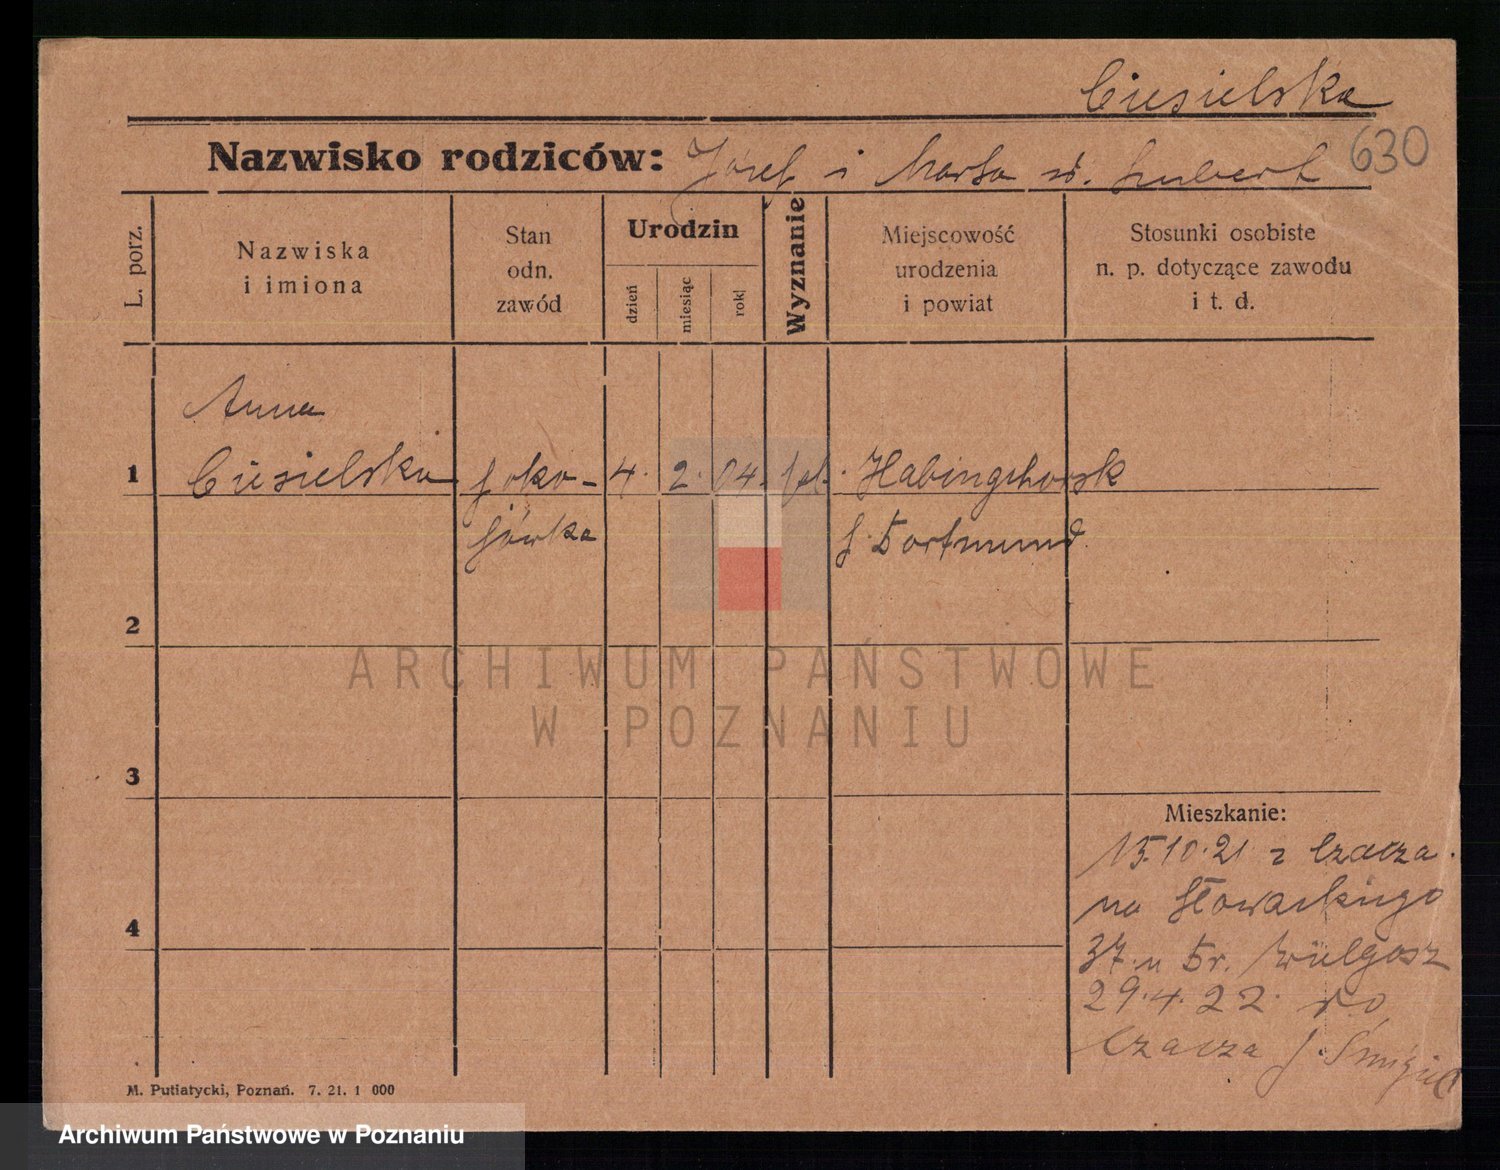 Ciesielska
630
Nazwisko rodziców: Józef i Marta d. Hubert
L. porz.
Nazwiska
i imiona
Stan
odn.
zawód
Urodzin
dzień
miesiąc
rok
Wyznanie
Miejscowość
urodzenia
i powiat
Stosunki osobiste
n. p. dotyczące zawodu
i t. d.
Anna
1 Ciesielska poko- 4. 2. 04. Habinghorsk
jówka Dortmund
2
3
4
ARCHIWUM PAŃSTWOWE
W POZNANIU
Mieszkanie:
15.10.21 z Czacza.
na Słowackiego
37. u Dr.
29.4.22. do
Czacza p. Śmigiel
M. Putiatycki, Poznań. 7. 21. 1 000
Archiwum Państwowe w Poznaniu